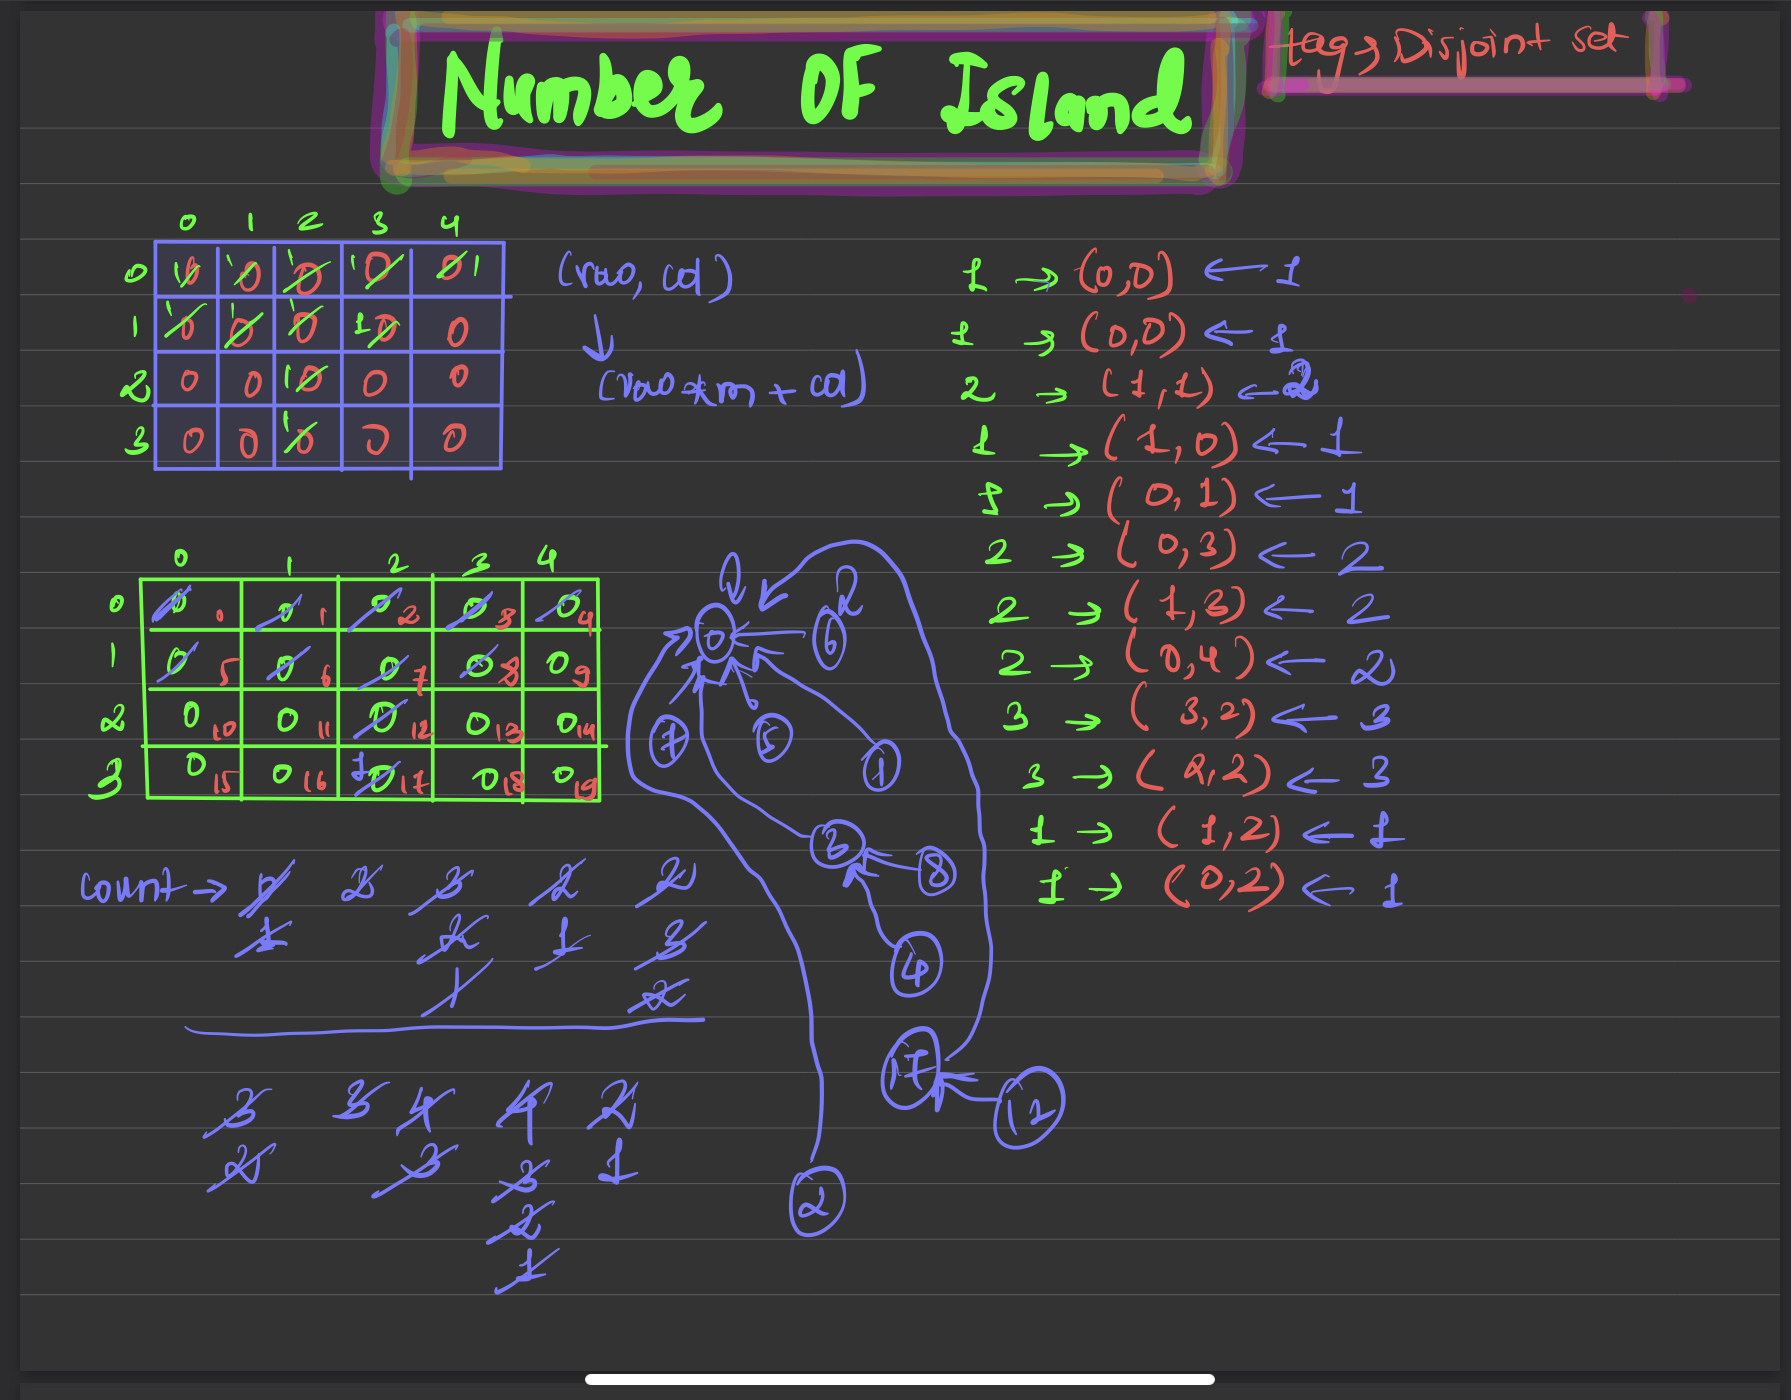 Number OF Island
tag → Disjoint set
0 1 2 3 4
0 1 0 1 0 1 0 1 0 0 1
1 1 0 1 0 1 0 1 0 0
2 0 0 1 0 0 0
3 0 0 1 0 0 0
(row, col)
↓
(row*m + col)
1 → (0,0) ← 1
1 → (0,0) ← 1
2 → (1,1) ← 2
1 → (1,0) ← 1
1 → (0,1) ← 1
2 → (0,3) ← 2
2 → (1,3) ← 2
2 → (0,4) ← 2
3 → (3,2) ← 3
3 → (2,2) ← 3
1 → (1,2) ← 1
1 → (0,2) ← 1
0 1 2 3 4
0 0 0 0 1 0 2 0 3 0 4
1 0 5 0 6 0 7 0 8 0 9
2 0 10 0 11 0 12 0 13 0 14
3 0 15 0 16 1 0 17 0 18 0 19
2
0 6
7 5 1
3 8
4
17 12
2
count → 2 3 2 2
1 2 1 3
1 2
3 3 4 4 2
2 3 3 1
2
1